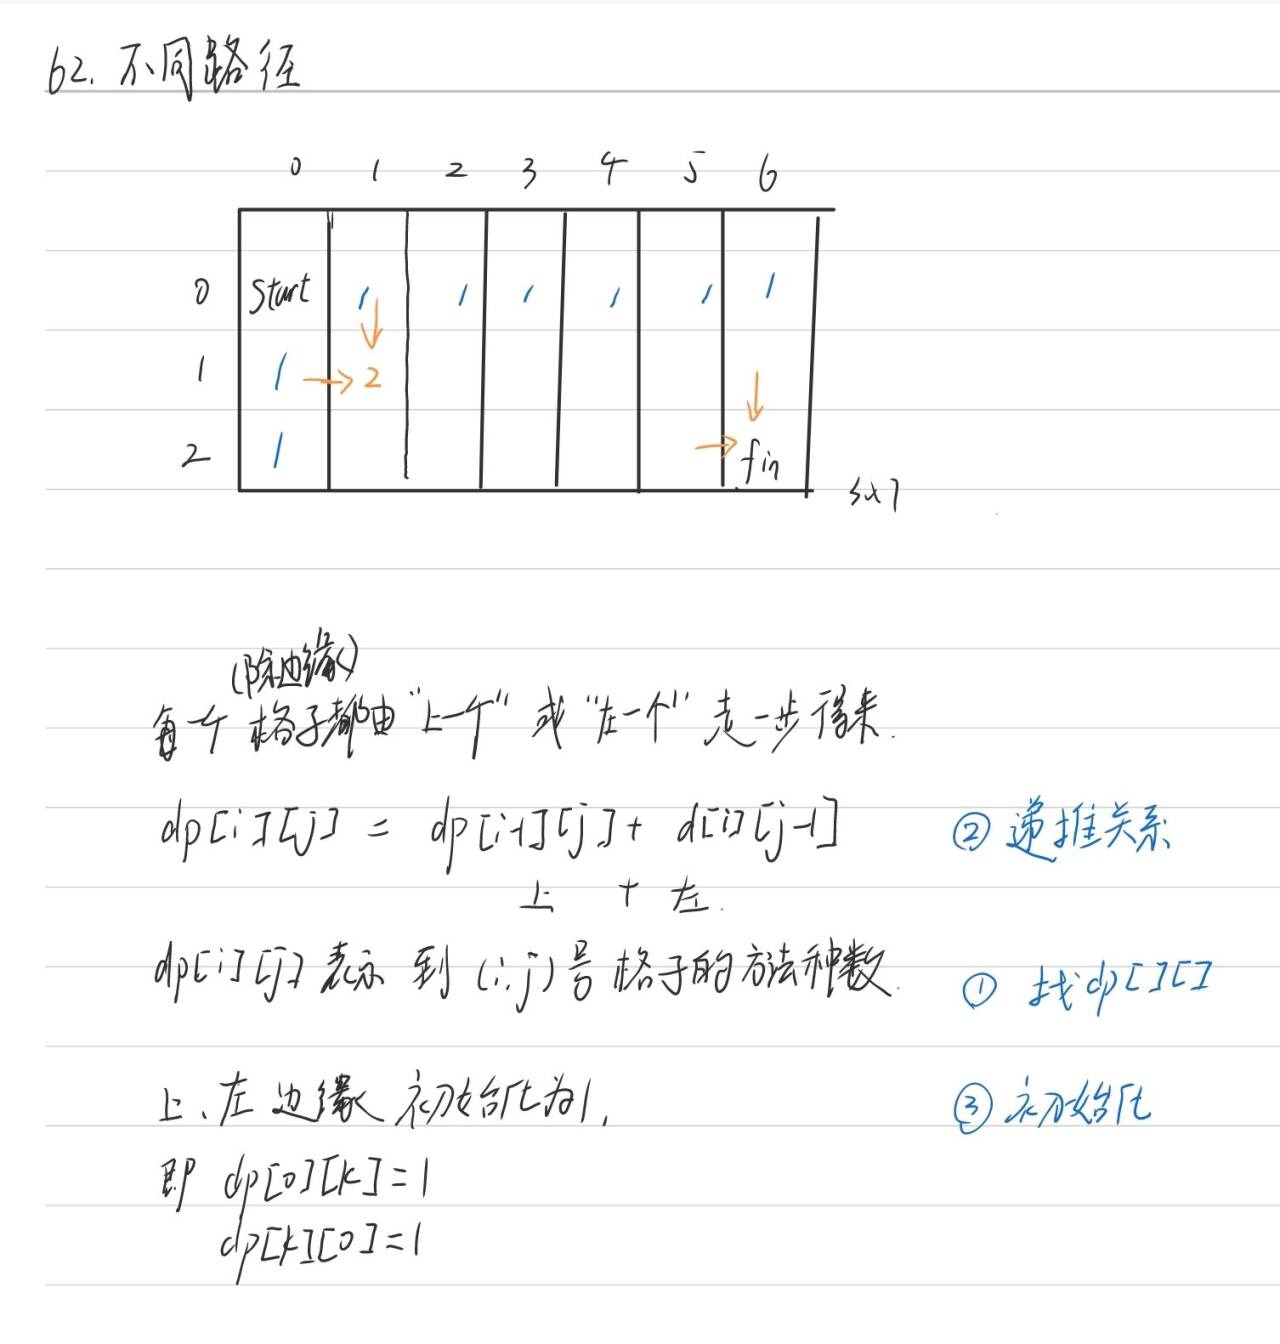 62. 不同路径
0 1 2 3 4 5 6
0 Start 1 1 1 1 1 1
1 1 2
2 1 fin
3x7
(除边缘)
每一个格子都由“上一个”或“左一个”走一步得来.
dp[i][j] = dp[i-1][j] + d[i][j-1] ② 递推关系
上 + 左.
dp[i][j] 表示 到 (i,j) 号格子的方法种数. ① 找dp[][]
上、左边缘 初始化为1, ③ 初始化
即 dp[0][k]=1
dp[k][0]=1